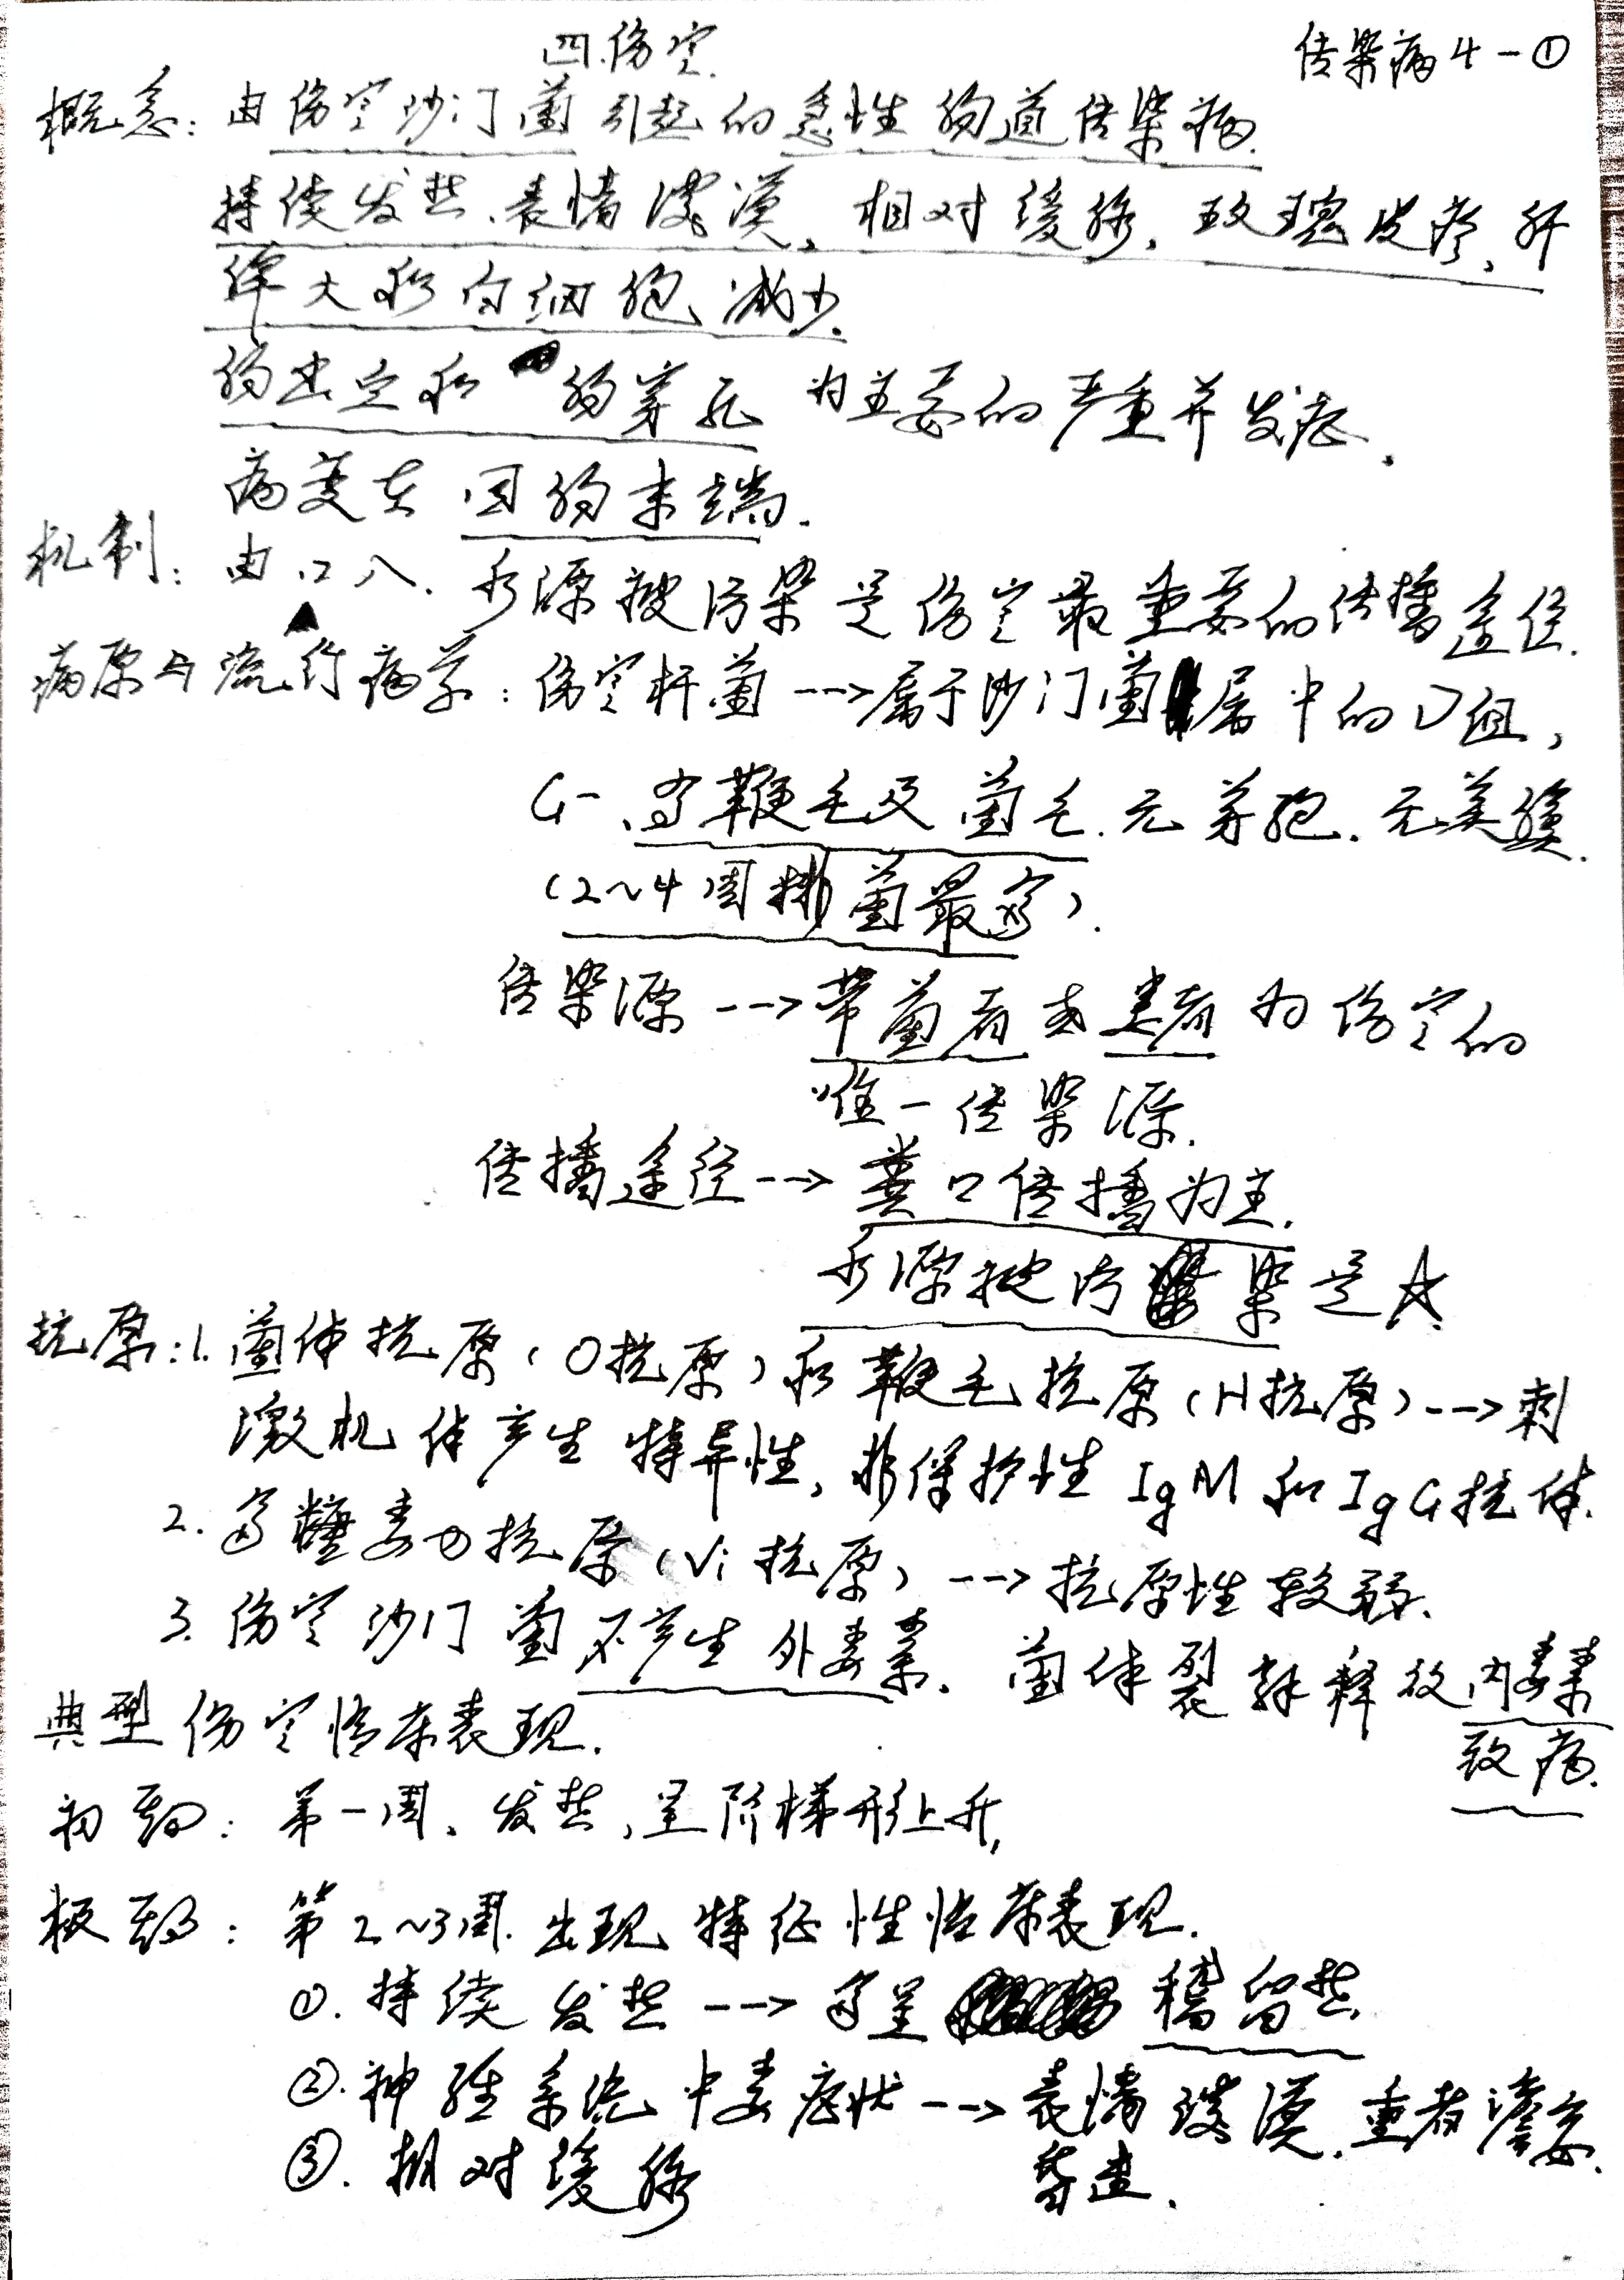 四.伤寒.
传染病4-①
概念：由伤寒沙门菌引起的急性肠道传染病.
持续发热、表情淡漠、相对缓脉、玫瑰皮疹、肝
脾大和白细胞减少.
肠出血和肠穿孔 为主要的严重并发症.
病变在 回肠末端.
机制：由口入. 水源被污染是伤寒最重要的传播途径.
病原与流行病学：伤寒杆菌-->属于沙门菌属中的D组,
G-、有鞭毛及菌毛.无芽孢.无荚膜.
(2~4周排菌最多).
传染源-->带菌者或患者为伤寒的
唯一传染源.
传播途径-->粪口传播为主.
水源被污染是☆
抗原：1.菌体抗原(O抗原)和鞭毛抗原(H抗原)-->刺
激机体产生特异性,非保护性IgM和IgG抗体.
2.多糖毒力抗原(Vi抗原)-->抗原性较弱.
3.伤寒沙门菌不产生外毒素. 菌体裂解释放内毒素
致病.
典型伤寒临床表现.
初期：第一周、发热,呈阶梯形上升,
极期：第2~3周.出现特征性临床表现.
①.持续发热-->多呈 稽留热
②.神经系统中毒症状-->表情淡漠.重者谵妄.
昏迷.
③.相对缓脉